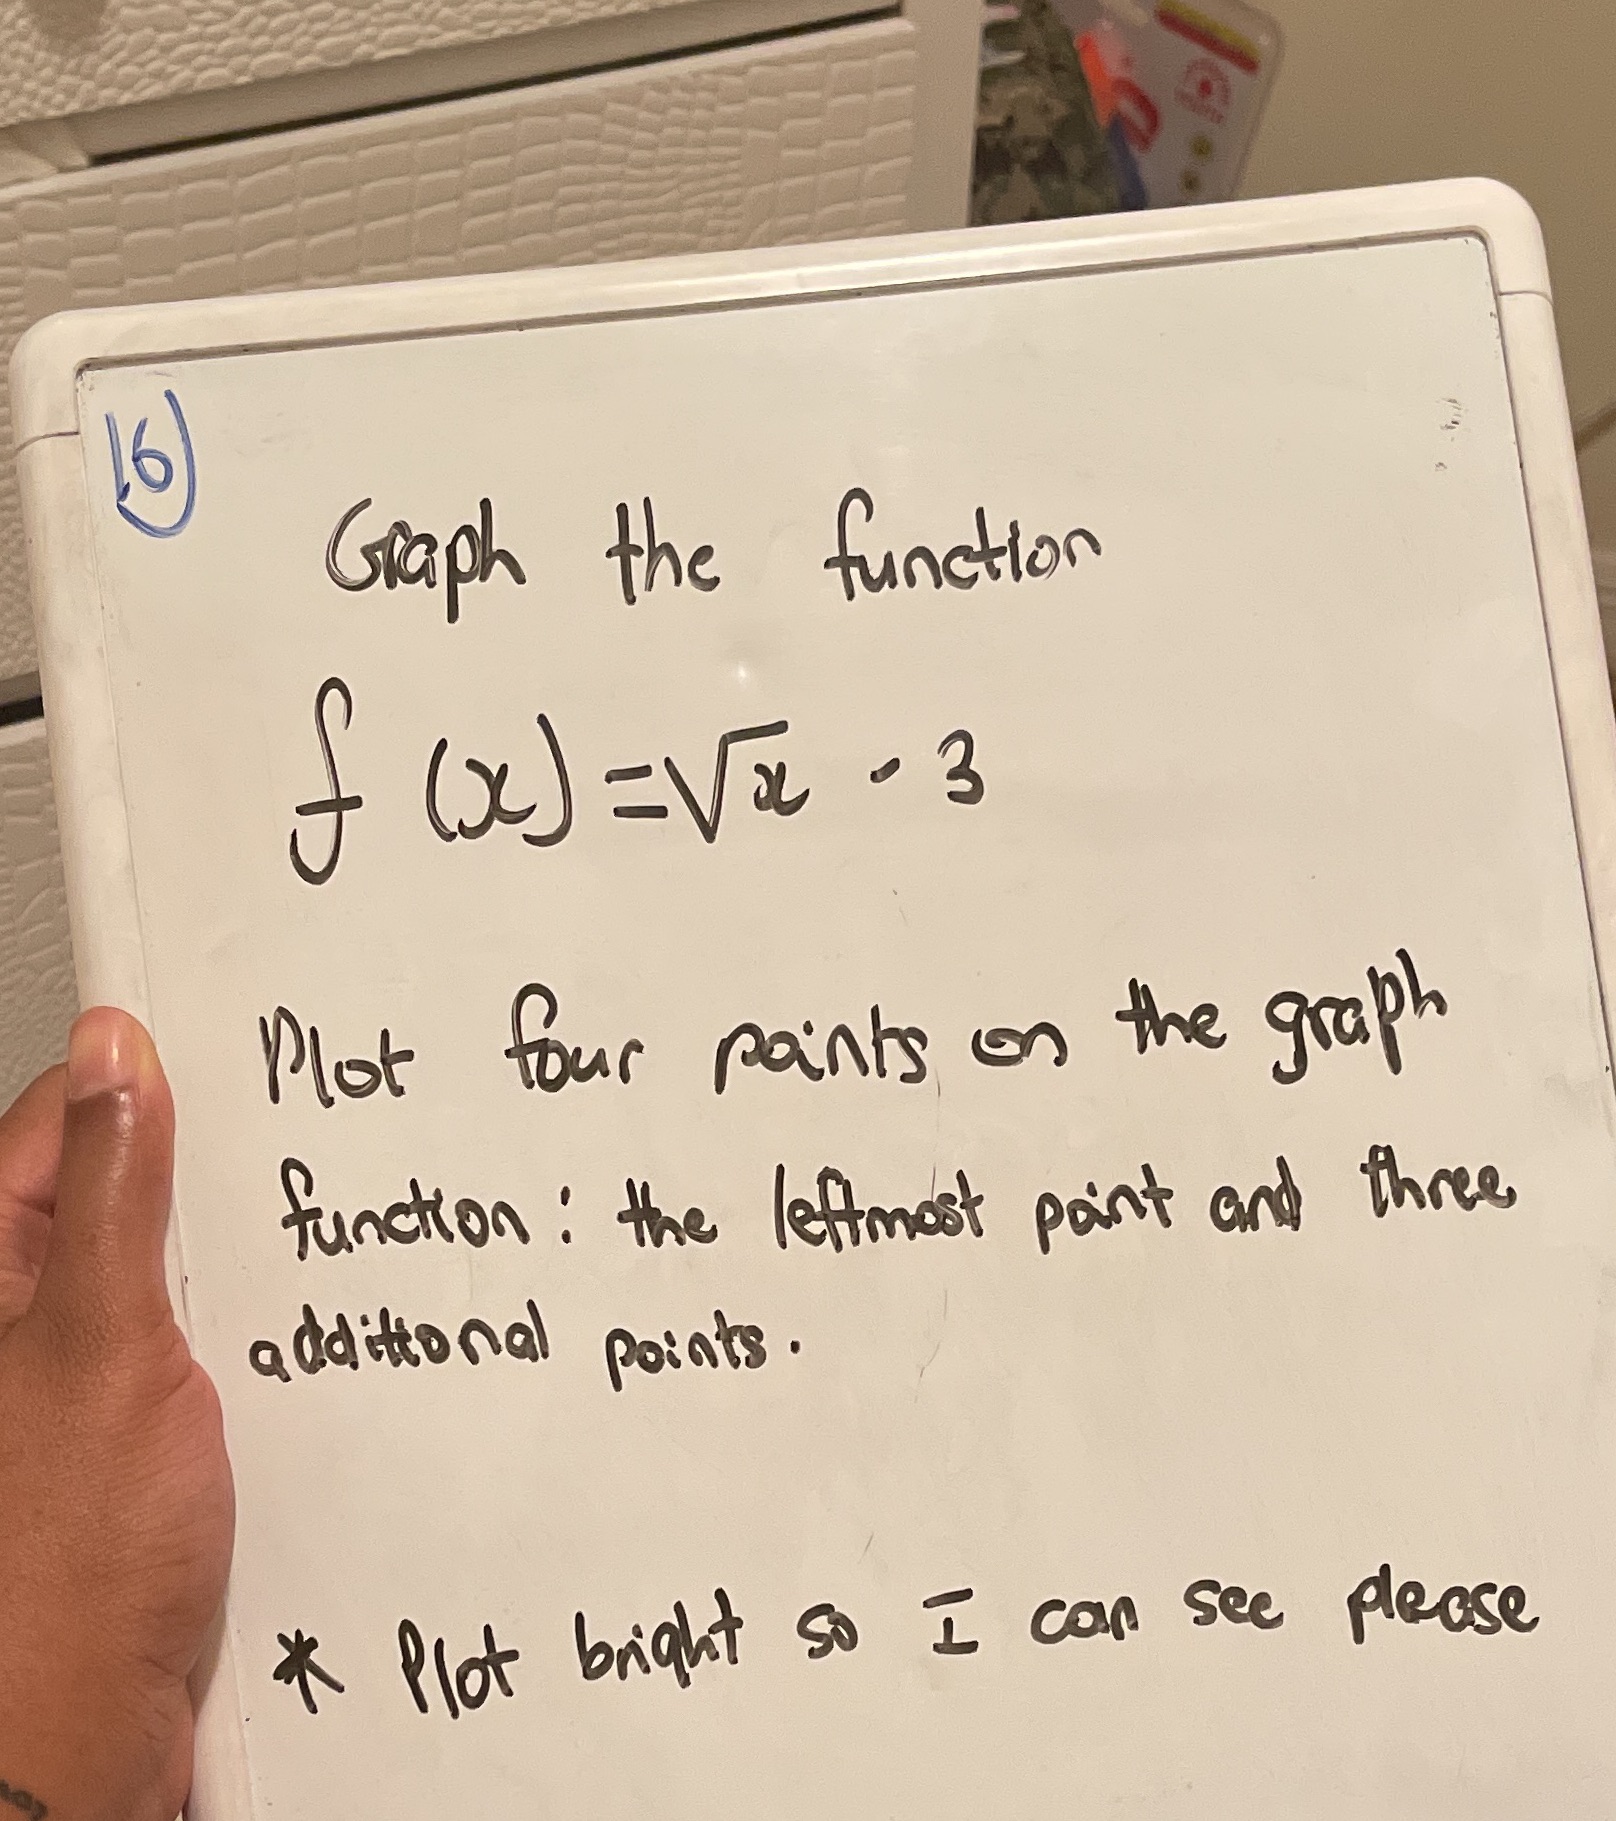 16)
Graph the function
f (x) = √x - 3
Plot four points on the graph
function : the leftmost point and three
additional points.
* Plot bright so I can see please